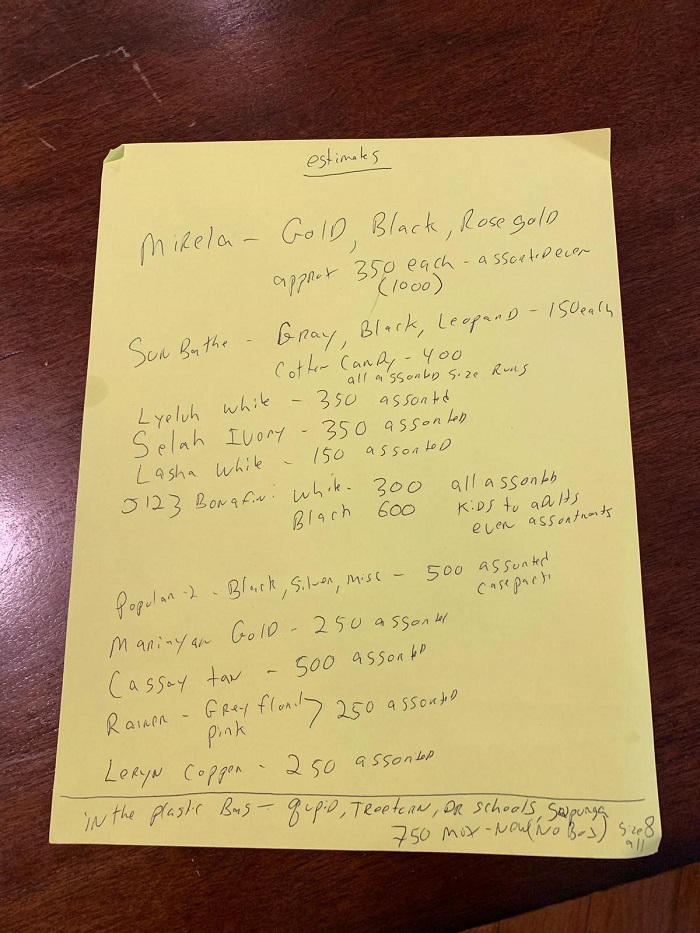 estimates
Mirela - Gold, Black, Rose gold
approx 350 each - assorted even
(1000)
Sun Bathe - Gray, Black, Leopard - 150 each
Cotton Candy - 400
all assorted size Runs
Lyeluh white - 350 assorted
Selah Ivory - 350 assorted
Lasha white - 150 assorted
J123 Bonafini white - 300 all assorted
Black 600 Kids to adults
even assortments
Popular-2 - Black, Silver, misc - 500 assorted
case packs
Marinyan Gold - 250 assorted
Cassay tan - 500 assorted
Rainer - Grey floral > 250 assorted
pink
Leryn Copper - 250 assorted
in the plastic Bag - qupiD, Tretorn, DR schools,
750 mix - New (No Box) size 8
all